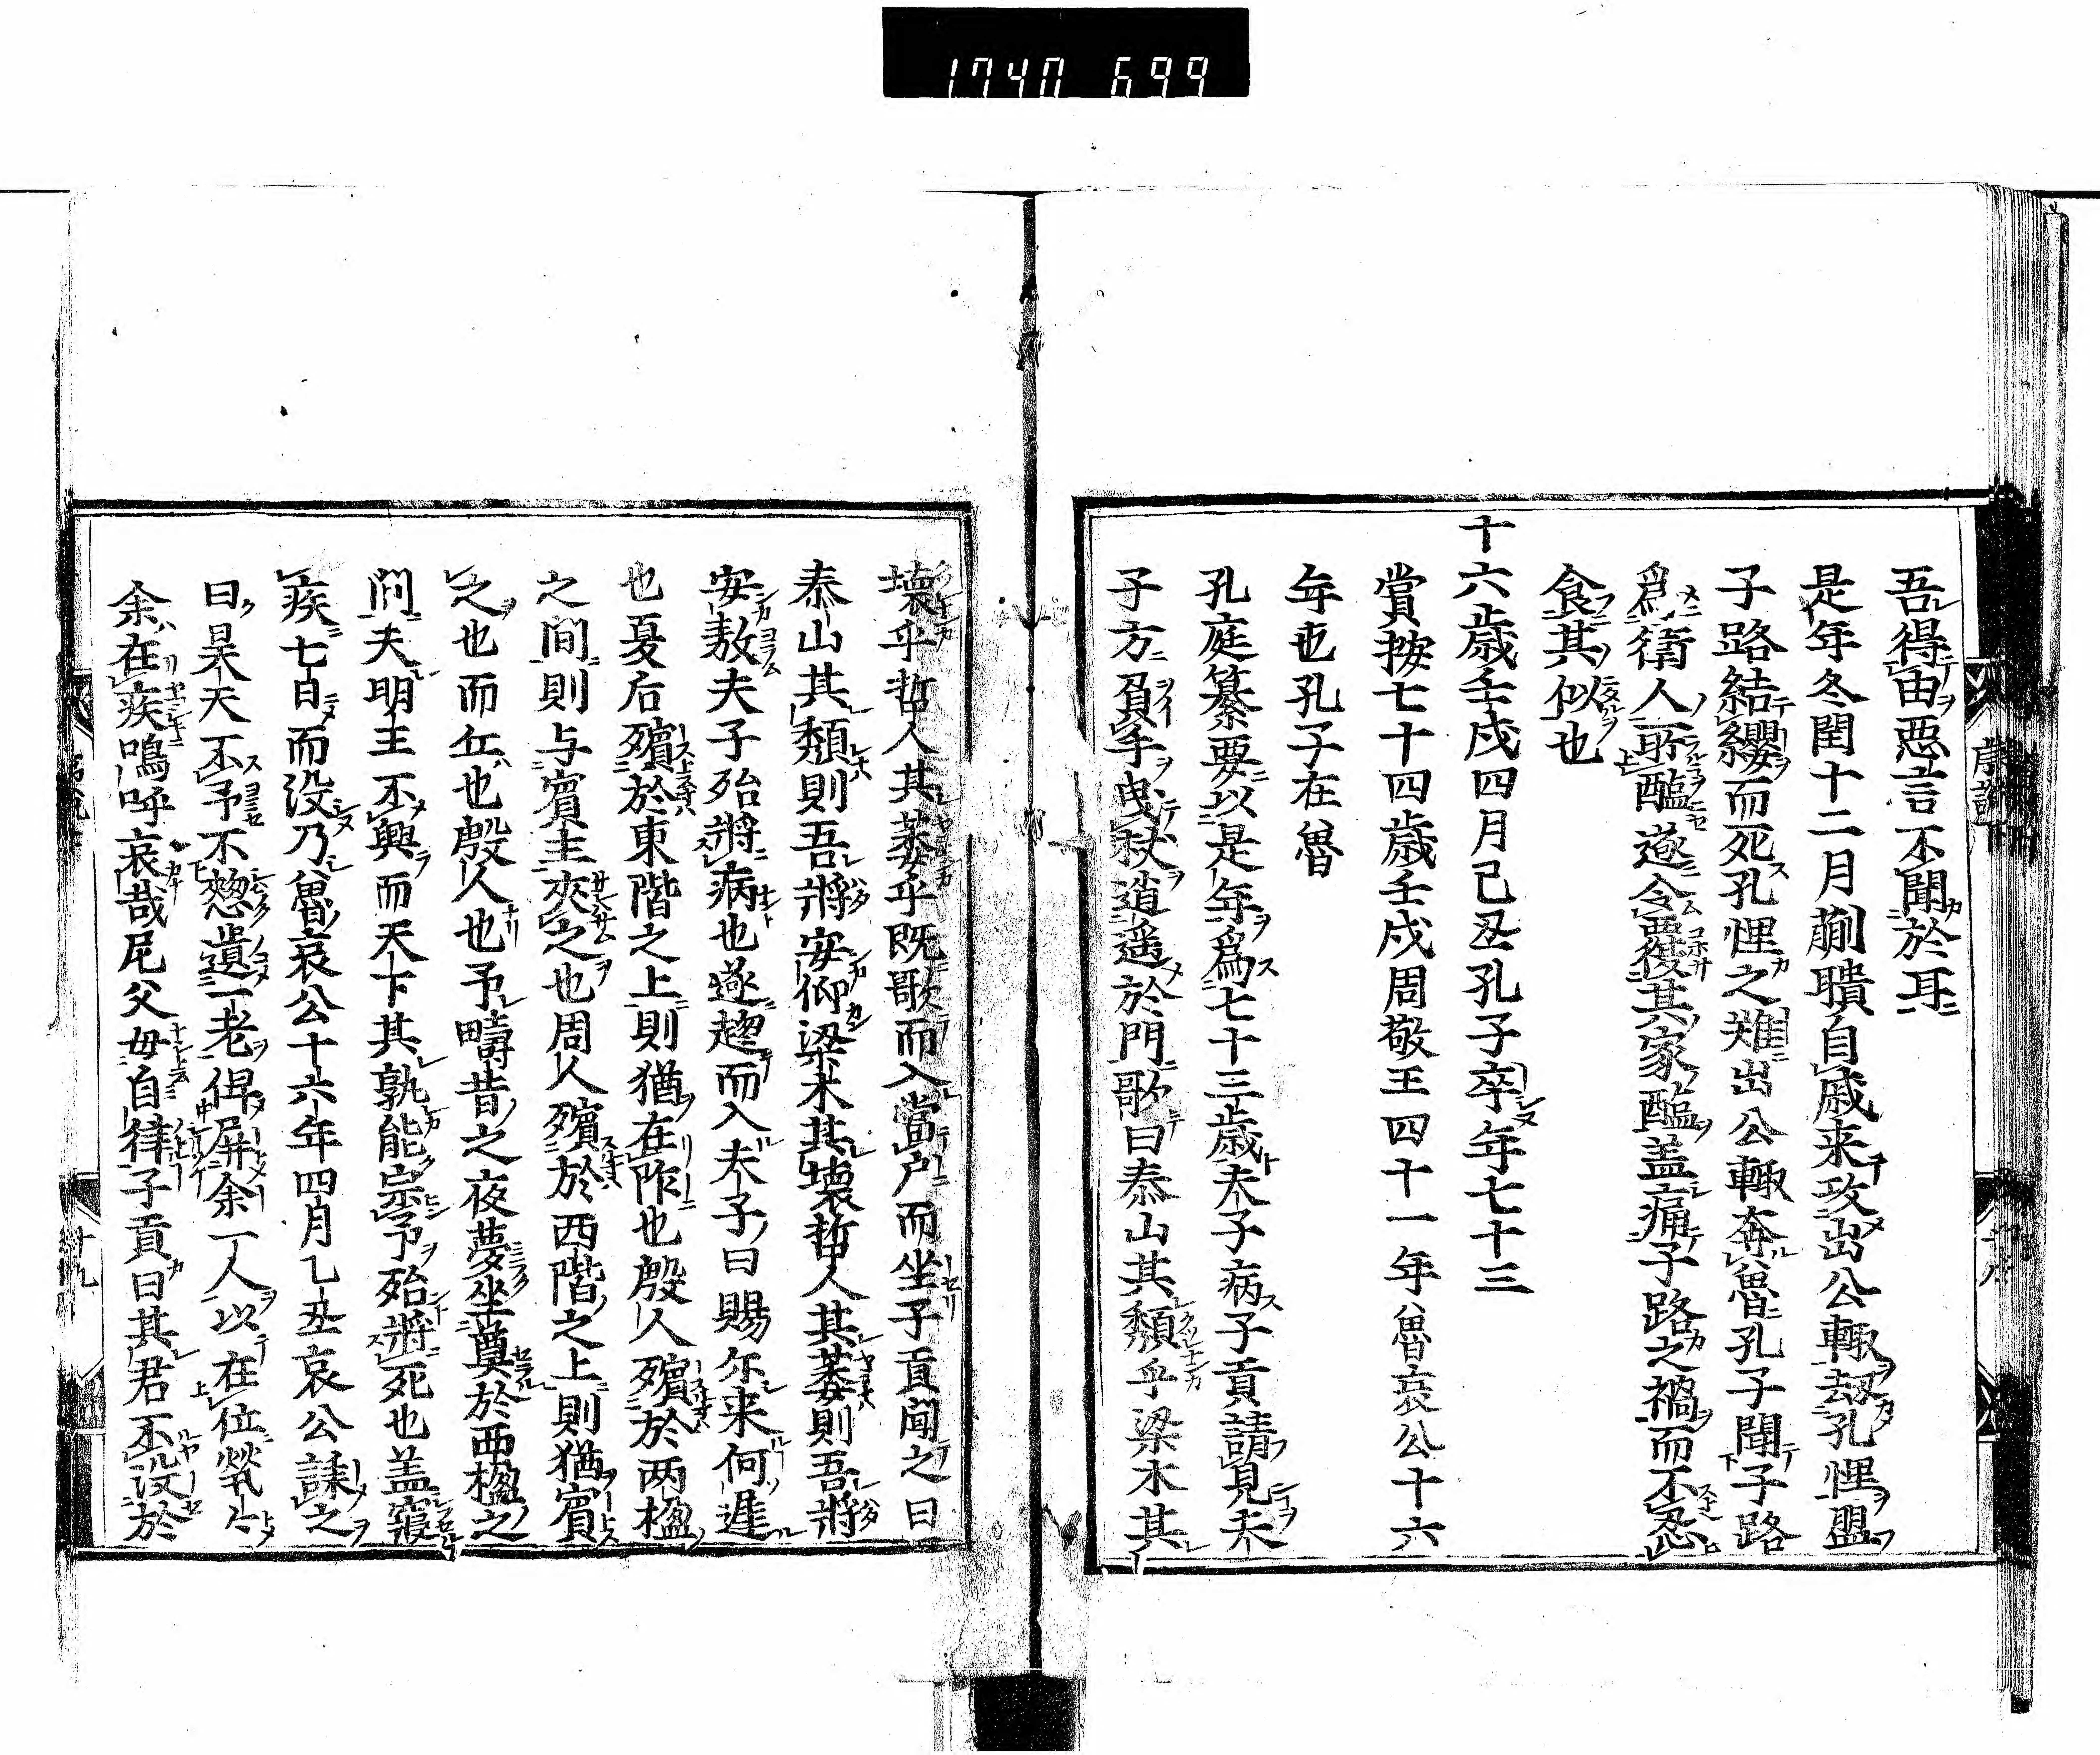 1740 699
吾得由惡言不聞於耳
是年冬閏十二月蒯聵自戚来攻出公輙刼孔悝盟
子路結纓而死孔悝之難出公輙奔魯孔子聞子路
爲衛人所醢遂令覆其家醢盖痛子路之禍而不忍
食其似也
十六歳壬戌四月己丑孔子卒年七十三
嘗按七十四歳壬戌周敬王四十一年魯哀公十六
年也孔子在魯
孔庭纂要以是年爲七十三歳夫子病子貢請見夫
子方負手曳杖逍遥於門歌曰泰山其頽乎梁木其
壊乎哲人其萎乎既歌而入當户而坐子貢聞之曰
泰山其頽則吾將安仰梁木其壊哲人其萎則吾將
安敖夫子殆將病也遂趨而入夫子曰賜尓来何遅
也夏后殯於東階之上則猶在阼也殷人殯於两楹
之間則与賓主夾之也周人殯於西階之上則猶賓
之也而丘也殷人也予疇昔之夜夢坐奠於两楹之
間夫明王不興而天下其孰能宗予殆將死也盖寢
疾七日而没乃魯哀公十六年四月乙丑哀公誄之
曰昊天不予不憖遺一老俾屏余一人以在位煢々
余在疾嗚呼哀哉尼父毋自律子貢曰其君不没於